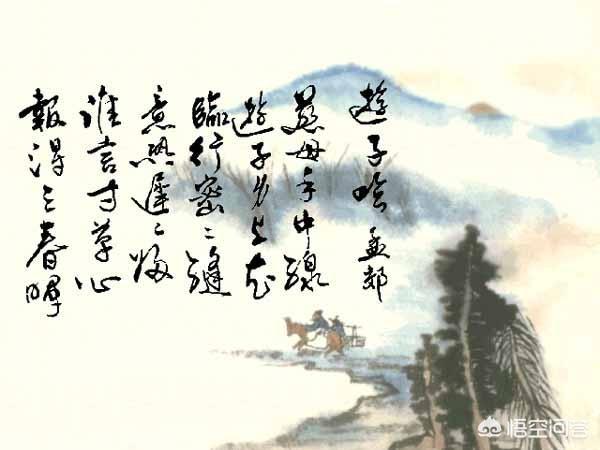 遊子吟 孟郊
慈母手中線
遊子身上衣
臨行密〻縫
意恐遲〻歸
誰言寸草心
報得三春暉
悟空问答